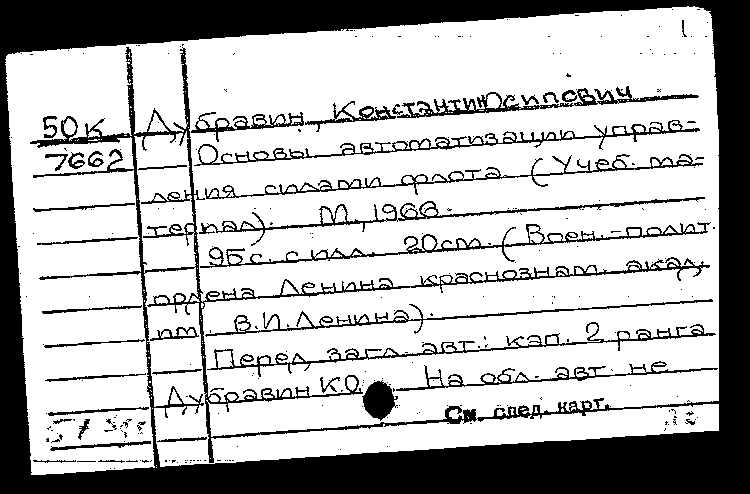 1
50К Дубравин, Константин Осипович
7662 Основы автоматизации управ-
ления силами флота. (Учеб. ма-
териал). М., 1966.
95 с. с илл. 20 см. (Воен.-полит.
ордена Ленина краснознам. акад.
им. В.И. Ленина).
Перед загл. авт.: кап. 2 ранга
Дубравин К.О. На обл. авт. не
См. след. карт.